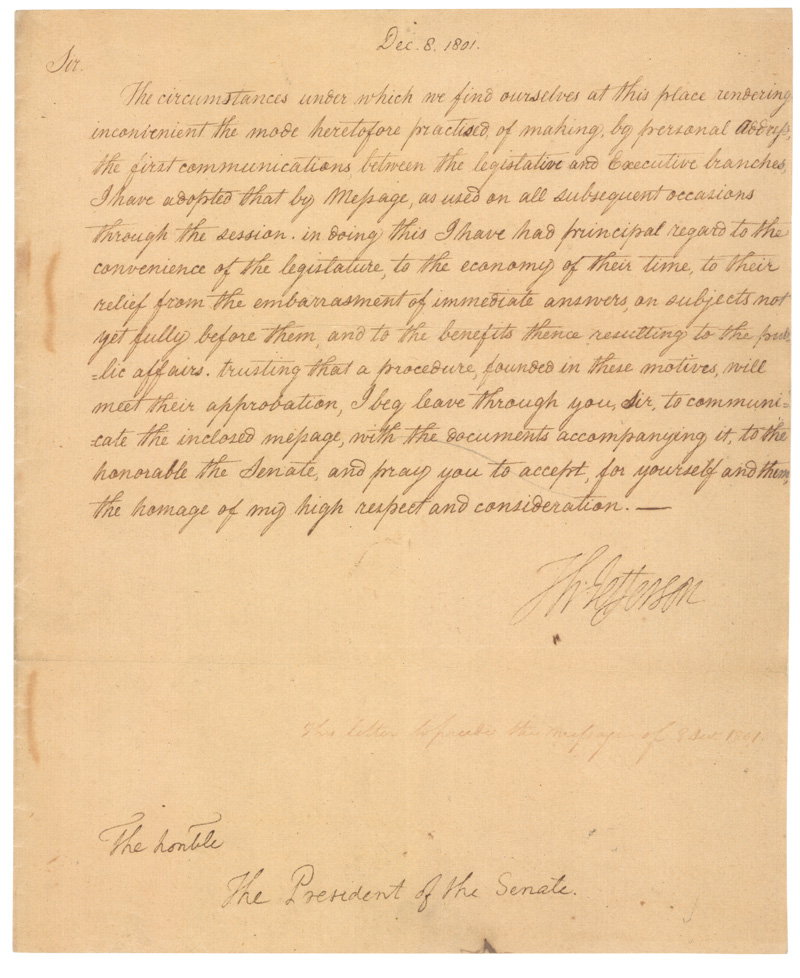 Dec. 8. 1801.
Sir.
The circumstances under which we find ourselves at this place rendering
inconvenient the mode heretofore practised, of making, by personal Address,
the first communications between the legislative and Executive branches,
I have adopted that by Message, as used on all subsequent occasions
through the session. in doing this I have had principal regard to the
convenience of the legislature, to the economy of their time, to their
relief from the embarrasment of immediate answers, on subjects not
yet fully before them, and to the benefits thence resulting to the pub-
=lic affairs. trusting that a procedure, founded in these motives, will
meet their approbation, I beg leave through you, Sir, to communi=
=cate the inclosed message, with the documents accompanying it, to the
honorable the Senate, and pray you to accept, for yourself and them,
the homage of my high respect and consideration. —
Th: Jefferson
This letter to precede the message of 8 Dec. 1801.
The honble
The President of the Senate.